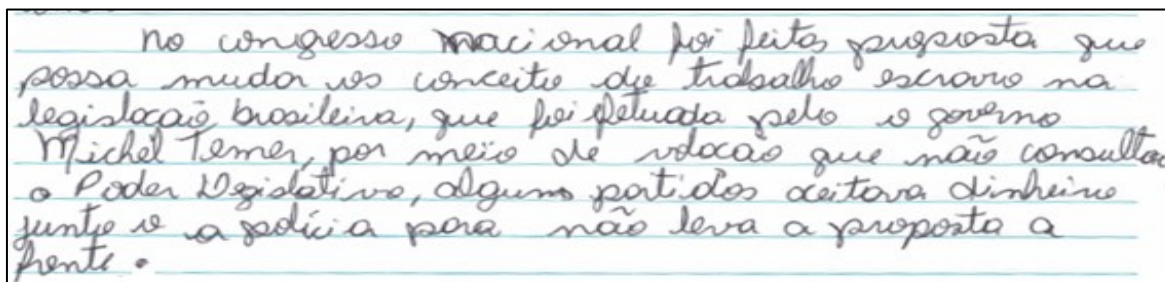 no congresso nacional foi feitas proposta que
possa mudar os conceito de trabalho escravo na
legislacaõ brasileira, que foi fetuada pelo o governo
Michel Temer, por meio de votacão que não consultou
o Poder Legislativo, alguns partidos aceitava dinheiro
junto o a polícia para não leva a proposta a
frente.